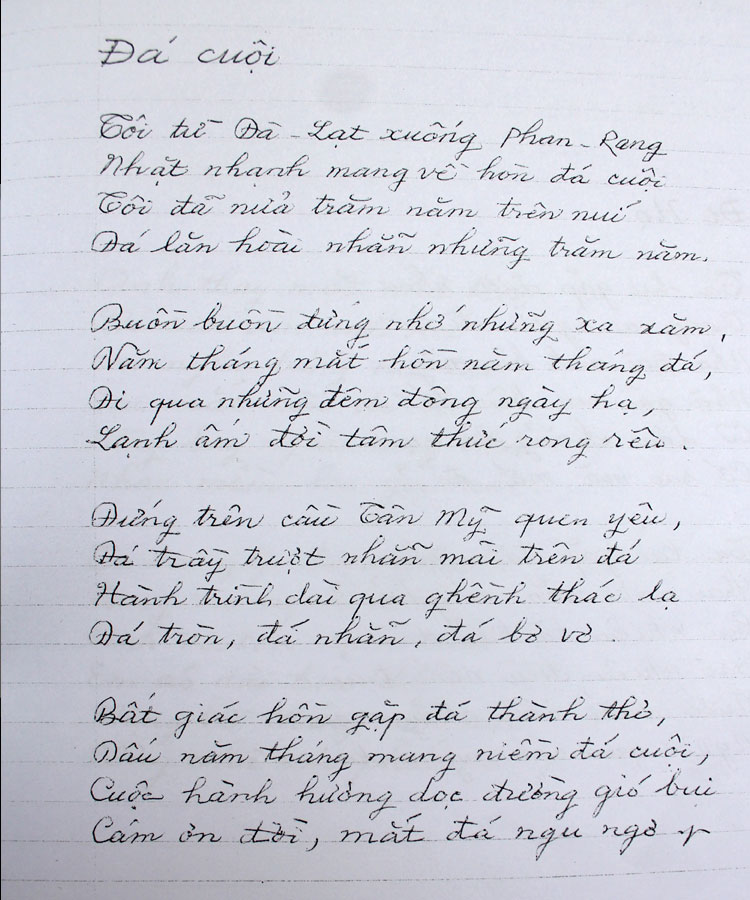 Đá cuội
Tôi từ Đà-Lạt xuống Phan-Rang
Nhặt nhạnh mang về hòn đá cuội
Tôi đã nửa trăm năm trên núi
Đá lăn hoài nhẵn những trăm năm.
Buồn buồn đứng nhớ những xa xăm,
Năm tháng mắt hồn năm tháng đá,
Đi qua những đêm đông ngày hạ,
Lạnh ấm đời tâm thức rong rêu.
Đứng trên cầu Tân Mỹ quen yêu,
Đá trầy trượt nhẵn mãi trên đá
Hành trình dài qua ghềnh thác lạ
Đá tròn, đá nhẵn, đá bơ vơ
Bất giác hồn gặp đá thành thơ,
Dấu năm tháng mang niềm đá cuội,
Cuộc hành hương dọc đường gió bụi
Cám ơn đời, mắt đá ngu ngơ